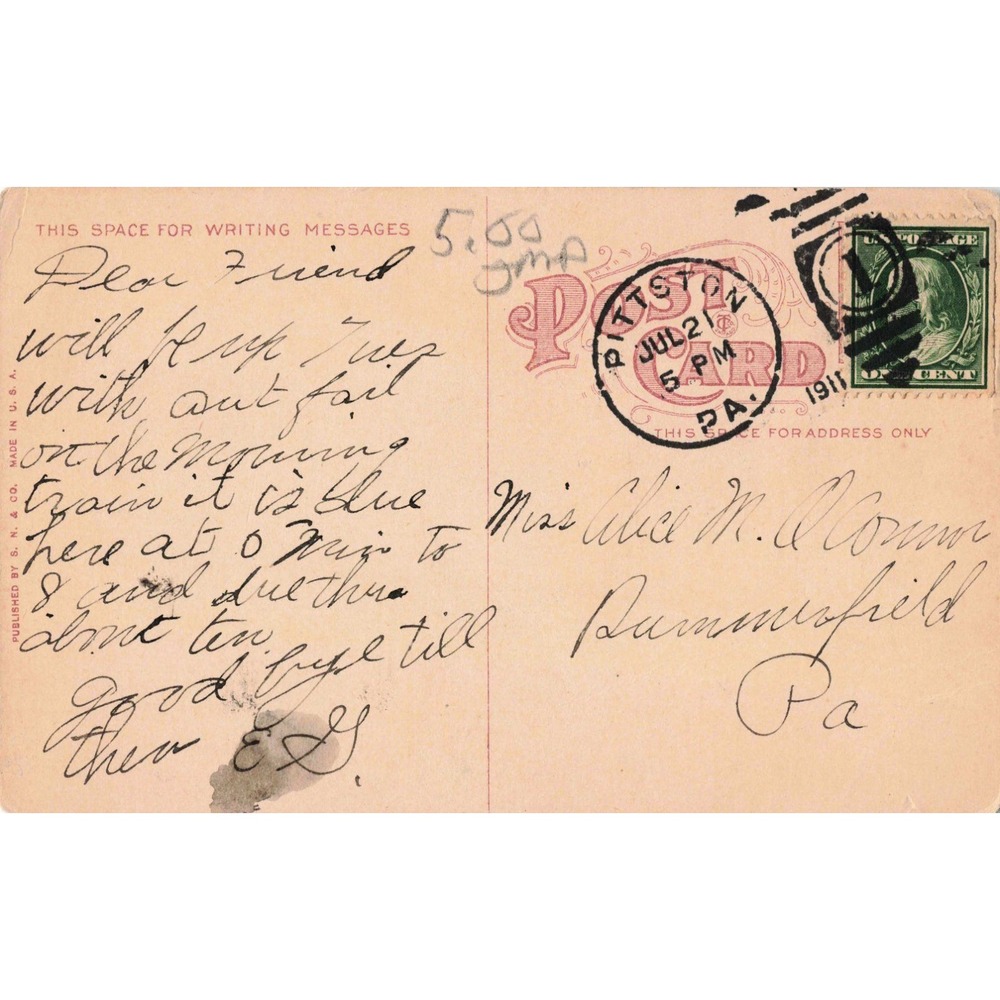 THIS SPACE FOR WRITING MESSAGES
5.00
Dear Friend
will be up Tues
with out fail
on the Morning
train it is due
here at 0 Min to
8 and due thre
about ten
good bye till
then E G.
PUBLISHED BY S. N. & CO. MADE IN U. S. A.
POST CARD
PITTSTON
JUL 21
5 PM
1911
PA.
1
U.S. POSTAGE
CENT
THIS SPACE FOR ADDRESS ONLY
Miss Alice M. O Connor
Pa